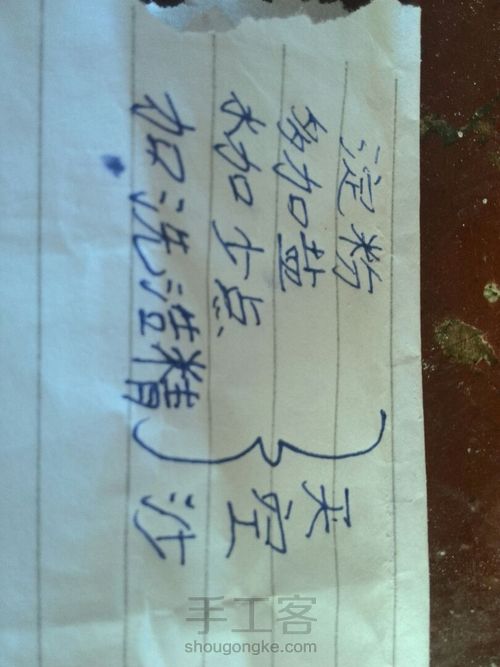 淀粉
多加盐
水加少点
加洗洁精
天空沙
手工客
shougongke.com